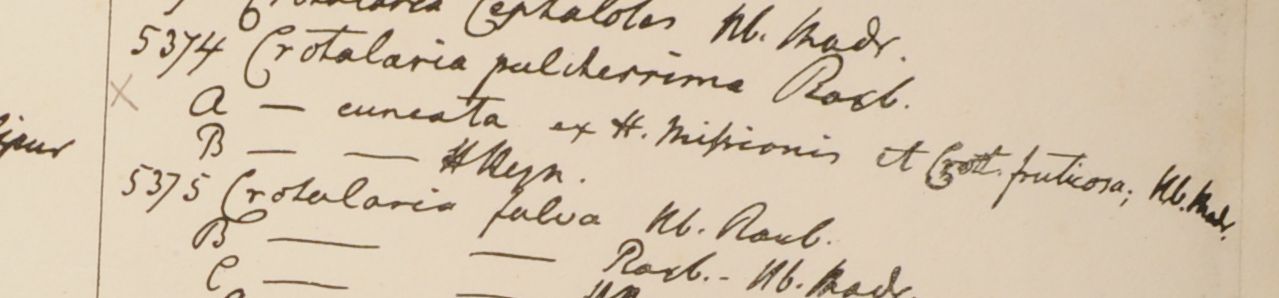 Crotalaria Cephalotes Hb. Madr.
5374 Crotalaria pulcherrima Roxb.
A — cuneata ex H. Missionis et Crott. fruticosa; Hb. Madr.
B — — H Heyn.
5375 Crotalaria fulva Hb. Roxb.
B — — Roxb. - Hb. Madr.
C — —